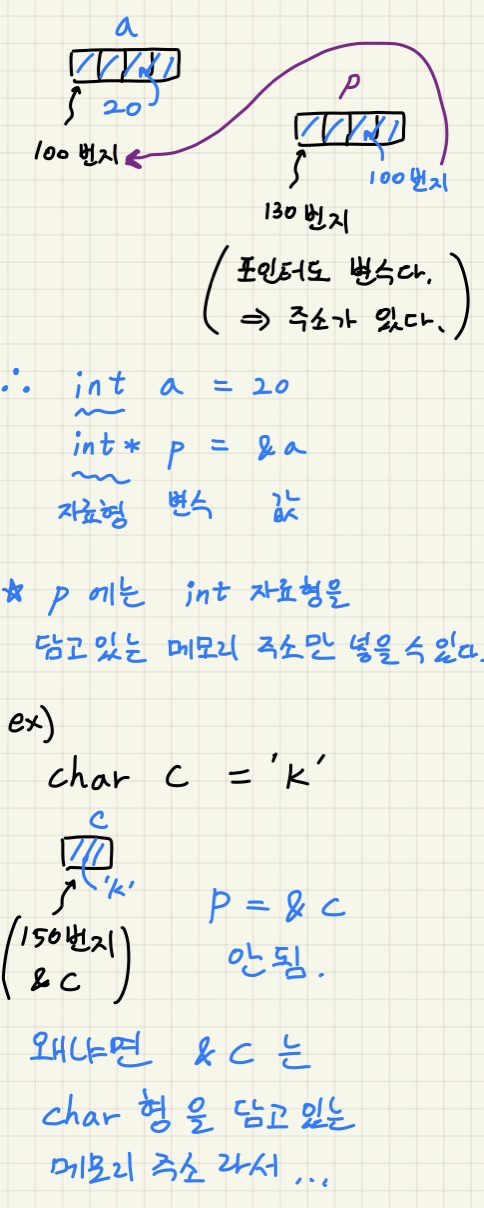 a
20
100번지
p
100번지
130번지
(포인터도 변수다.
⇒ 주소가 있다.)
∴ int a = 20
int* p = &a
자료형 변수 값
☆ p 에는 int 자료형을
담고있는 메모리 주소만 넣을 수 있다.
ex)
char c = 'k'
c
'k'
(150번지
& c)
p = & c
안됨.
왜냐면 & c 는
char 형을 담고 있는
메모리 주소 라서 ...